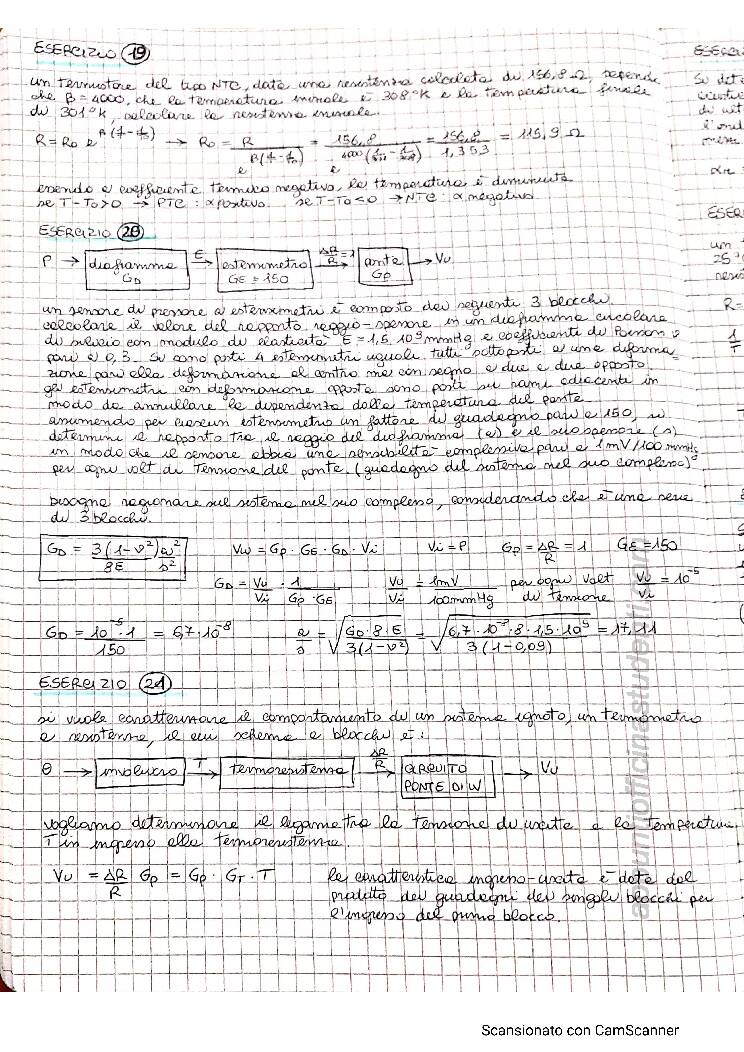 ESERCIZIO 19
un termistore del tipo NTC, data una resistenza calcolata di 156,8 Ω, sapendo
che β = 4000, che la temperatura iniziale è 308°K e la temperatura finale
di 301°K, calcolare la resistenza iniziale.
R = R0 e^β(1/T - 1/T0) → R0 = R / e^β(1/T - 1/T0) = 156,8 / e^4000(1/301 - 1/308) = 156,8 / 1,353 = 115,9 Ω
essendo a coefficiente termico negativo, la temperatura è diminuita
se T-T0>0 → PTC: α positivo. se T-T0<0 → NTC: α negativo
ESERCIZIO 20
P → diaframma GD → E → estensimetro GE = 150 → ΔR/R = 1 → ponte GP → Vu
un sensore di pressione a estensimetri è composto dai seguenti 3 blocchi.
calcolare il valore del rapporto raggio-spessore in un diaframma circolare
di silicio con modulo di elasticità E = 1,5 10⁹ mmHg e coefficiente di Poisson ν
pari a 0,3. Su sono posti 4 estensimetri uguali tutti sottoposti a una deforma_
zione pari alla deformazione al centro ma con segno a due a due opposto.
gli estensimetri con deformazione opposta sono posti su rami adiacenti in
modo da annullare la dipendenza dalla temperatura del ponte.
assumendo per ciascun estensimetro un fattore di guadagno pari a 150, si
determini il rapporto tra il raggio del diaframma (a) e il suo spessore (s)
in modo che il sensore abbia una sensibilità complessiva pari a 1mV/100 mmHg
per ogni volt di tensione del ponte. (guadagno del sistema nel suo complesso)
bisogna ragionare sul sistema nel suo complesso, considerando che è una serie
di 3 blocchi.
GD = 3(1-ν²)a² / 8E s² Vu = GP · GE · GD · Vi Vi = P GP = ΔR/R = 1 GE = 150
GD = Vu/Vi · 1/GP · GE Vu/Vi = 1mV/100mmHg per ogni volt di tensione Vu/Vi = 10⁻⁵
GD = 10⁻⁵ · 1 / 150 = 6,7 · 10⁻⁸ a/s = √GD · 8 · E / 3(1-ν²) = √6,7 · 10⁻⁸ · 8 · 1,5 · 10⁹ / 3(1-0,09) = 17,11
ESERCIZIO 21
si vuole caratterizzare il comportamento di un sistema ignoto, un termometro
a resistenza, il cui schema a blocchi è:
θ → involucro → T → termoresistenza → ΔR/R → CIRCUITO PONTE DI W → Vu
vogliamo determinare il legame tra la tensione di uscita e la temperatura
T in ingresso alla termoresistenza.
Vu = ΔR/R GP = GP · GT · T la caratteristica ingresso-uscita è data dal
prodotto dei guadagni dei singoli blocchi per
l'ingresso del primo blocco.
ESERCI
Si det
ESERC
un
25°
resi
R =
1/T
appuntiofficinastudenti.com
Scansionato con CamScanner